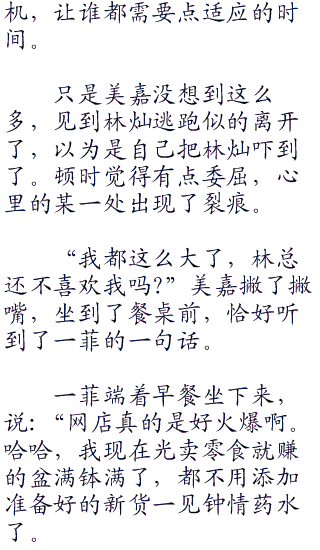 机，让谁都需要点适应的时
间。
只是美嘉没想到这么
多，见到林灿逃跑似的离开
了，以为是自己把林灿吓到
了。顿时觉得有点委屈，心
里的某一处出现了裂痕。
“我都这么大了，林总
还不喜欢我吗?”美嘉撇了撇
嘴，坐到了餐桌前，恰好听
到了一菲的一句话。
一菲端着早餐坐下来，
说:“网店真的是好火爆啊。
哈哈，我现在光卖零食就赚
的盆满钵满了，都不用添加
准备好的新货一见钟情药水
了。